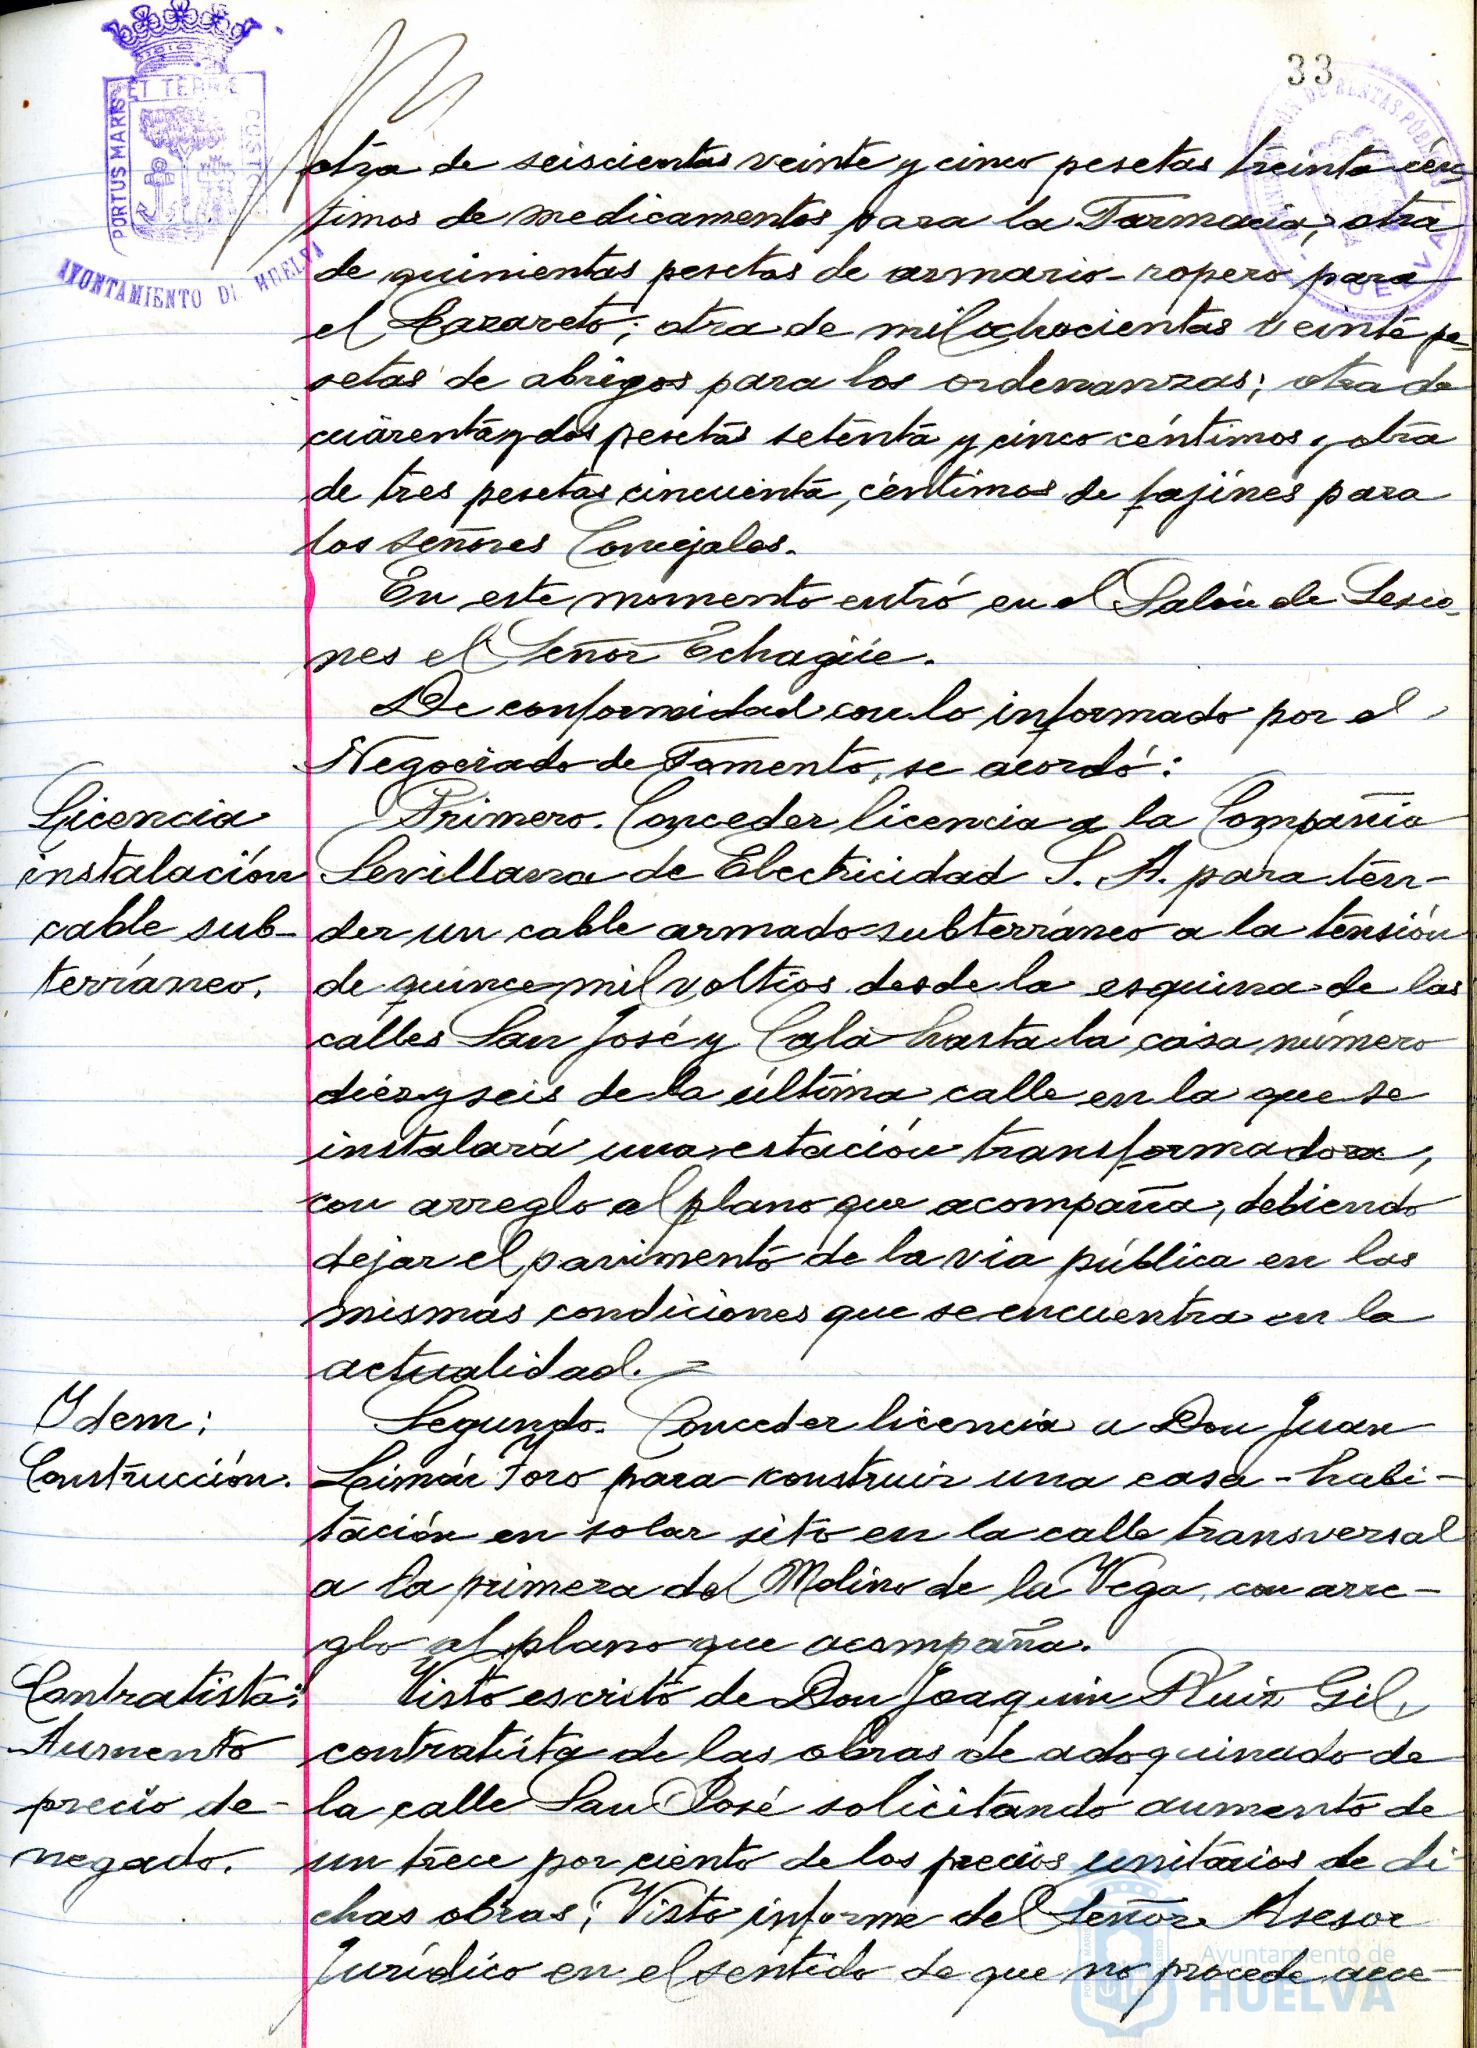 33
ET TERRE
PORTUS MARIS
CUSTO
AYUNTAMIENTO DE HUELVA
DE RENTAS PÚBL
HUELVA
otra de seiscientas veinte y cinco pesetas treinta cén
timos de medicamentos para la Farmacia; otra
de quinientas pesetas de armario-ropero para
el Lazareto; otra de mil ochocientas veinte pe-
setas de abrigos para los ordenanzas; otra de
cuarenta y dos pesetas setenta y cinco céntimos y otra
de tres pesetas cincuenta céntimos de fajines para
los señores Concejales.
En este momento entró en el Salón de Sesio-
nes el Señor Echagüe.
De conformidad con lo informado por el
Negociado de Fomento, se acordó:
Licencia
instalación
cable sub-
terráneo.
Primero. Conceder licencia a la Compañia
Sevillana de Electricidad S. A. para ten-
der un cable armado subterráneo a la tensión
de quince mil voltios desde la esquina de las
calles San José y Cala hasta la casa número
diez y seis de la última calle en la que se
instalará una estación transformadora,
con arreglo al plano que acompaña, debiendo
dejar el pavimento de la via pública en las
mismas condiciones que se encuentra en la
actualidad.
Idem:
Construcción.
Segundo. Conceder licencia a Don Juan
Limón Toro para construir una casa-habi-
tación en solar sito en la calle transversal
a la primera del Molino de la Vega, con arre-
glo al plano que acompaña.
Contratista:
Aumento
precio de-
negado.
Visto escrito de Don Joaquin Ruiz Gil,
contratista de las obras de adoquinado de
la calle San José solicitando aumento de
un trece por ciento de los precios unitarios de di-
chas obras; Visto informe del Señor Asesor
Jurídico en el sentido de que no procede acce-
Ayuntamiento de
HUELVA